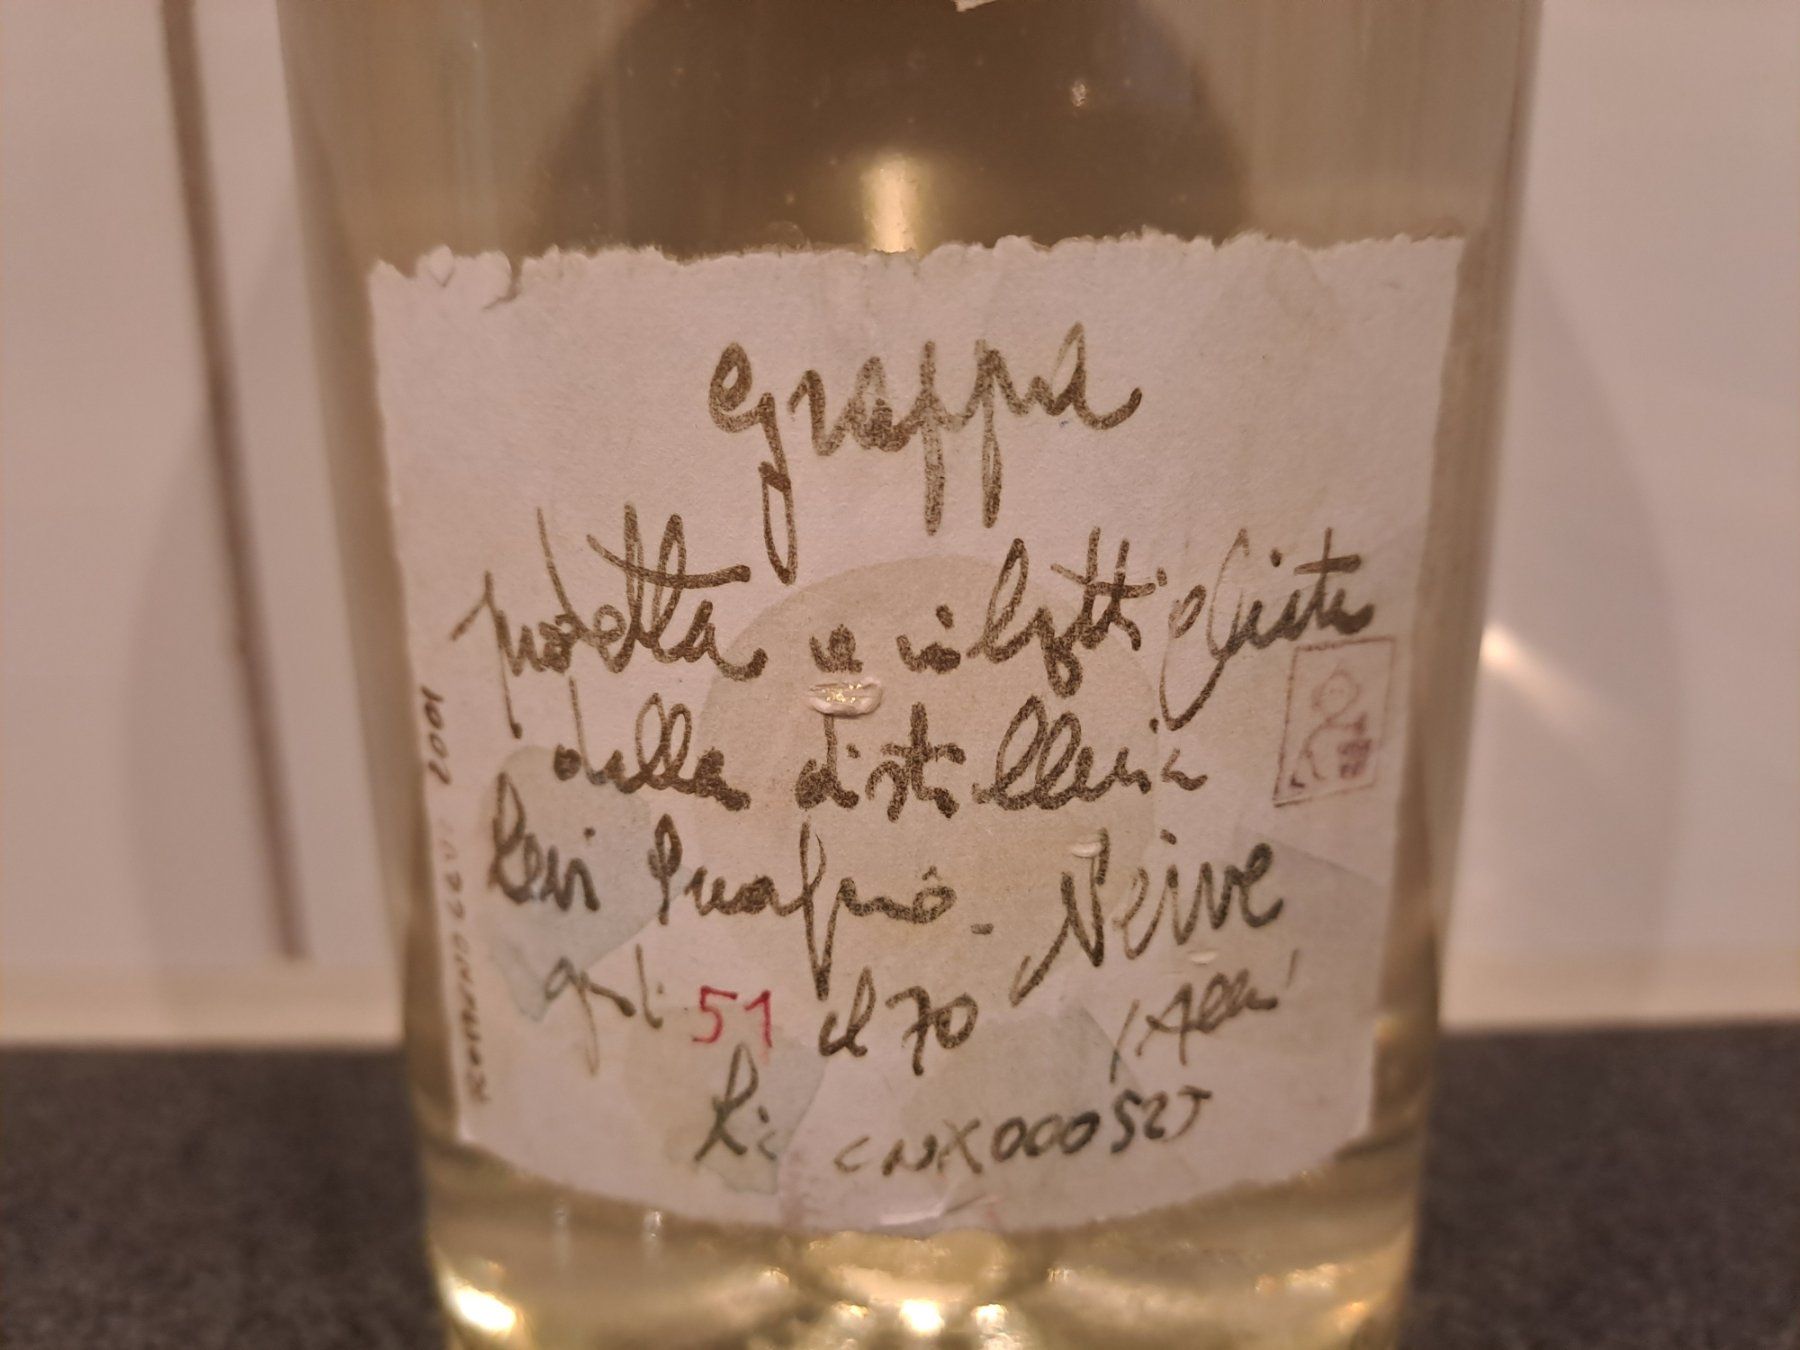 grappa
prodotta e imbottigliata
della distilleria
Levi Serafino - Neive
gradi 51 cl 70 Italia
Lic CNX00052J
ROMANO LEVI 2001